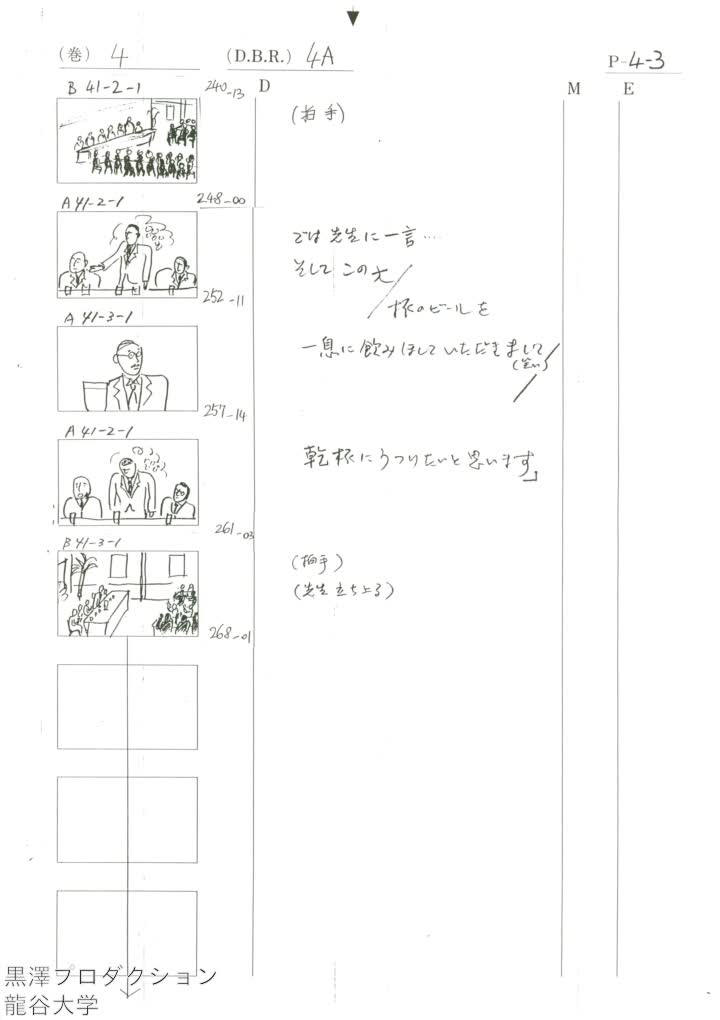 (巻) 4 (D.B.R.) 4A P-4-3
B 41-2-1 240-13 D M E
(拍手)
A 41-2-1 248-00
では 先生に一言…
そして この大
252-11
杯のビールを
A 41-3-1
一息に飲みほしていただきまして
(笑い)
257-14
A 41-2-1
乾杯にうつりたいと思います」
261-03
B 41-3-1
(拍手)
(先生立ち上る)
268-01
黒澤プロダクション
龍谷大学